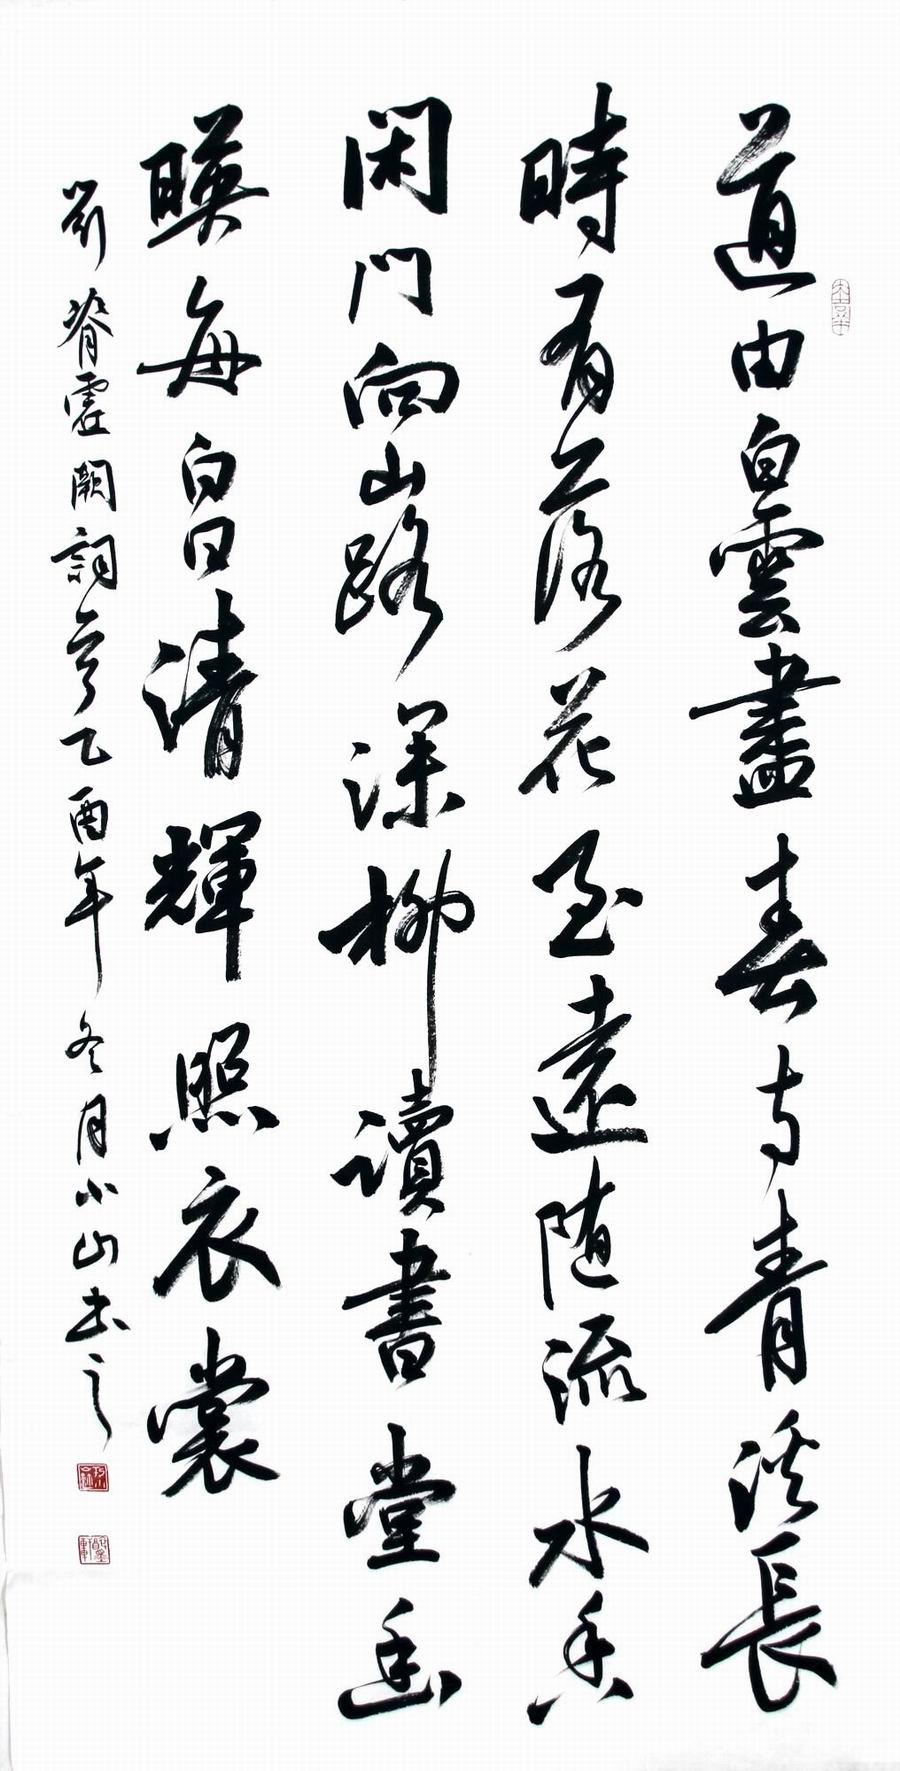 道由白雲盡春与青溪長
時有落花至遠随流水香
閑門向山路深柳讀書堂幽
暎每白日清輝照衣裳
劉脊虛闕詞一首乙酉年冬月小山书之